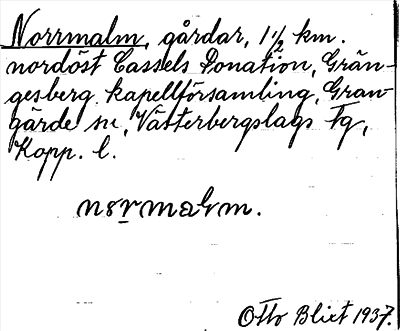 Norrmalm, gårdar, 1 1/2 km.
nordöst Cassels Donation, Grän-
gesberg kapellförsamling, Gran-
gärde sn, Västerbergslags Tg,
Kopp. l.
normalm.
Otto Blixt 1937.